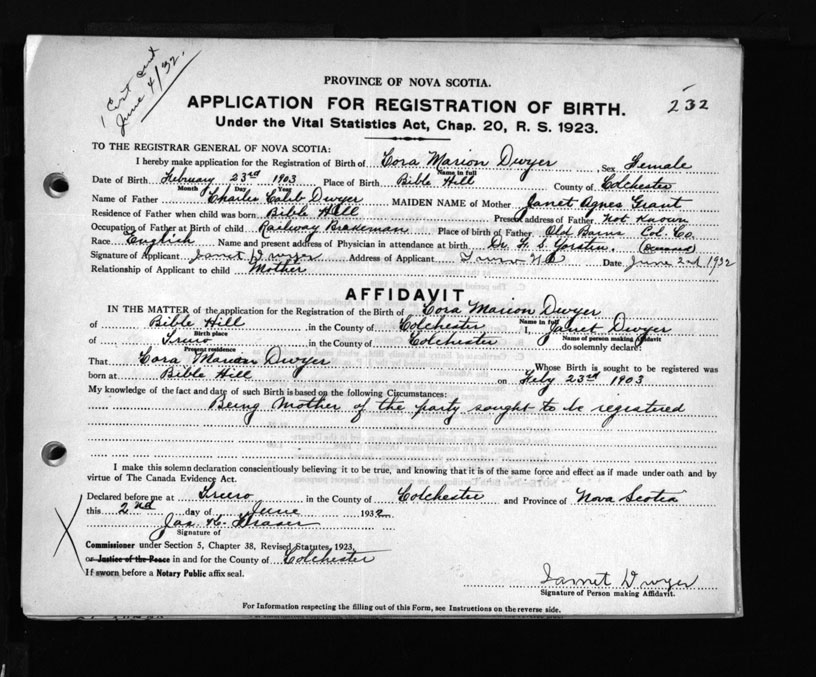 1 Cert sent
June 4/32.
PROVINCE OF NOVA SCOTIA.
APPLICATION FOR REGISTRATION OF BIRTH.
232
Under the Vital Statistics Act, Chap. 20, R. S. 1923.
TO THE REGISTRAR GENERAL OF NOVA SCOTIA:
I hereby make application for the Registration of Birth of Cora Marion Dwyer, Sex Female
Name in full
Date of Birth February 23rd 1903 Place of Birth Bible Hill County of Colchester
Month Day Year
Name of Father Charles Calib Dwyer MAIDEN NAME of Mother Janet Agnes Grant
Residence of Father when child was born Bible Hill Present address of Father Not Known
Occupation of Father at Birth of child Railway Brakeman Place of birth of Father Old Barns Col. Co.
Race English Name and present address of Physician in attendance at birth Dr. S. Yorston
Signature of Applicant Janet Dwyer Address of Applicant Truro NS Date June 2nd 1932
Relationship of Applicant to child Mother
AFFIDAVIT
IN THE MATTER of the application for the Registration of the Birth of Cora Marion Dwyer
Name in full
of Bible Hill in the County of Colchester I, Janet Dwyer
Birth place Name of person making Affidavit
of Truro in the County of Colchester do solemnly declare:
Present residence
That Cora Marion Dwyer Whose Birth is sought to be registered was
born at Bible Hill on Feby 23rd 1903
My knowledge of the fact and date of such Birth is based on the following Circumstances:
Being Mother of the party sought to be registered
I make this solemn declaration conscientiously believing it to be true, and knowing that it is of the same force and effect as if made under oath and by
virtue of The Canada Evidence Act.
Declared before me at Truro in the County of Colchester and Province of Nova Scotia
this 2nd day of June 1932
Jas. H. Fraser
Signature of
Commissioner under Section 5, Chapter 38, Revised Statutes, 1923,
or Justice of the Peace in and for the County of Colchester
If sworn before a Notary Public affix seal.
Janet Dwyer
Signature of Person making Affidavit.
For Information respecting the filling out of this Form, see Instructions on the reverse side.